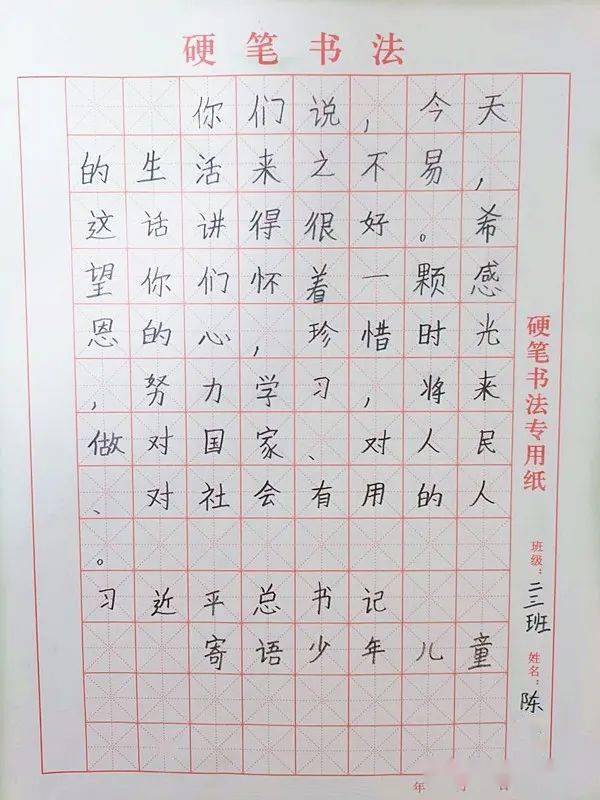 硬笔书法
你们说，今天
的生活来之不易，
这话讲得很好。希
望你们怀着一颗感
恩的心，珍惜时光
，努力学习，将来
做对国家、对人民
、对社会有用的人
。
习近平总书记
寄语少年儿童
硬笔书法专用纸
班级：二三班
姓名：陈
年 月 日